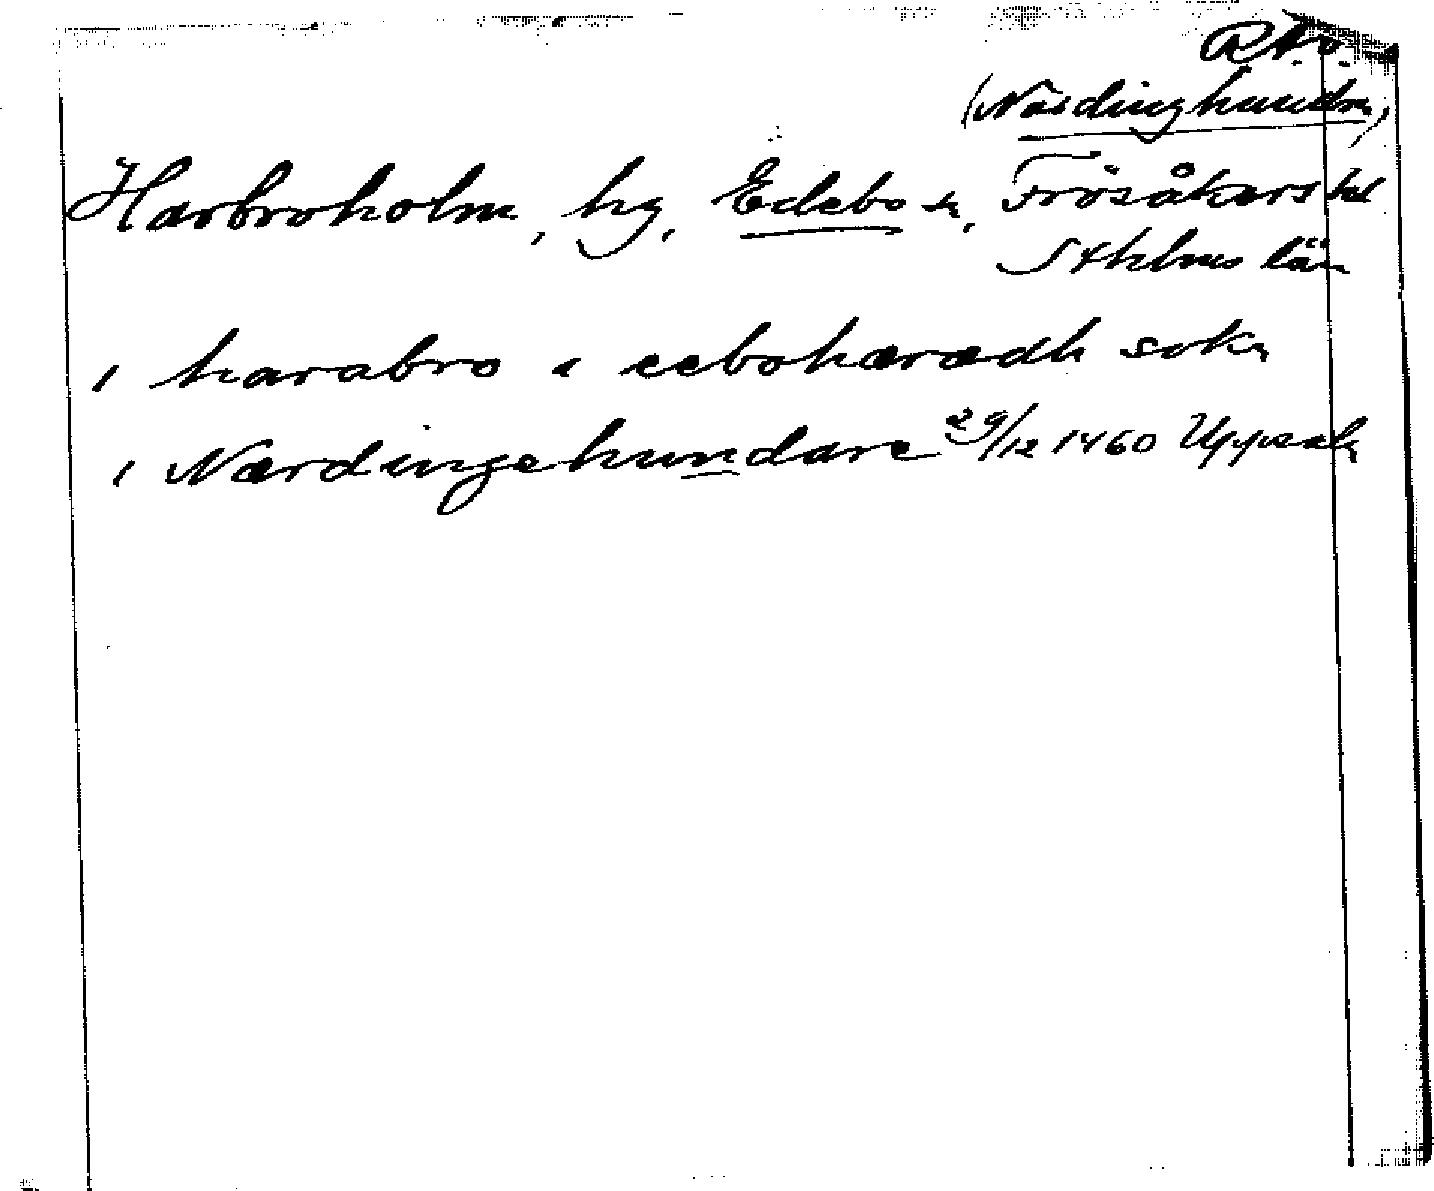 R.A.o.
(Närdinghundra)
Harbroholm, hg, Edebo sn, Frösåkers hd
Sthlms län
i harabro i eebohæradh sokn
i Nærdingehundare 29/12 1460 Uppsala